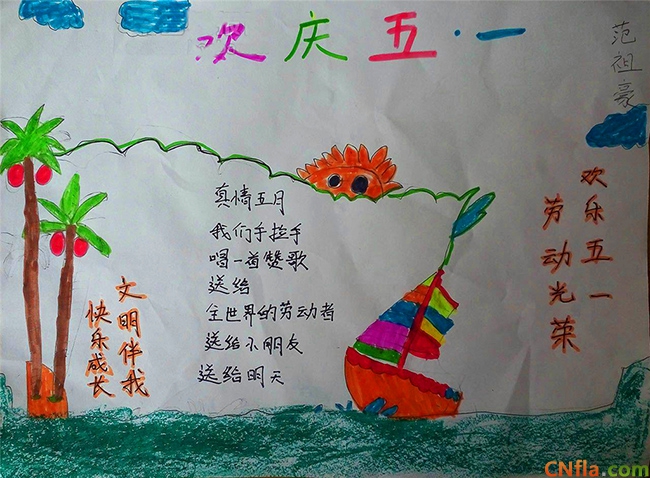 欢庆五·一
范祖豪
真情五月
我们手拉手
唱一首赞歌
送给
全世界的劳动者
送给小朋友
送给明天
欢乐五一
劳动光荣
文明伴我
快乐成长
CNfla.com